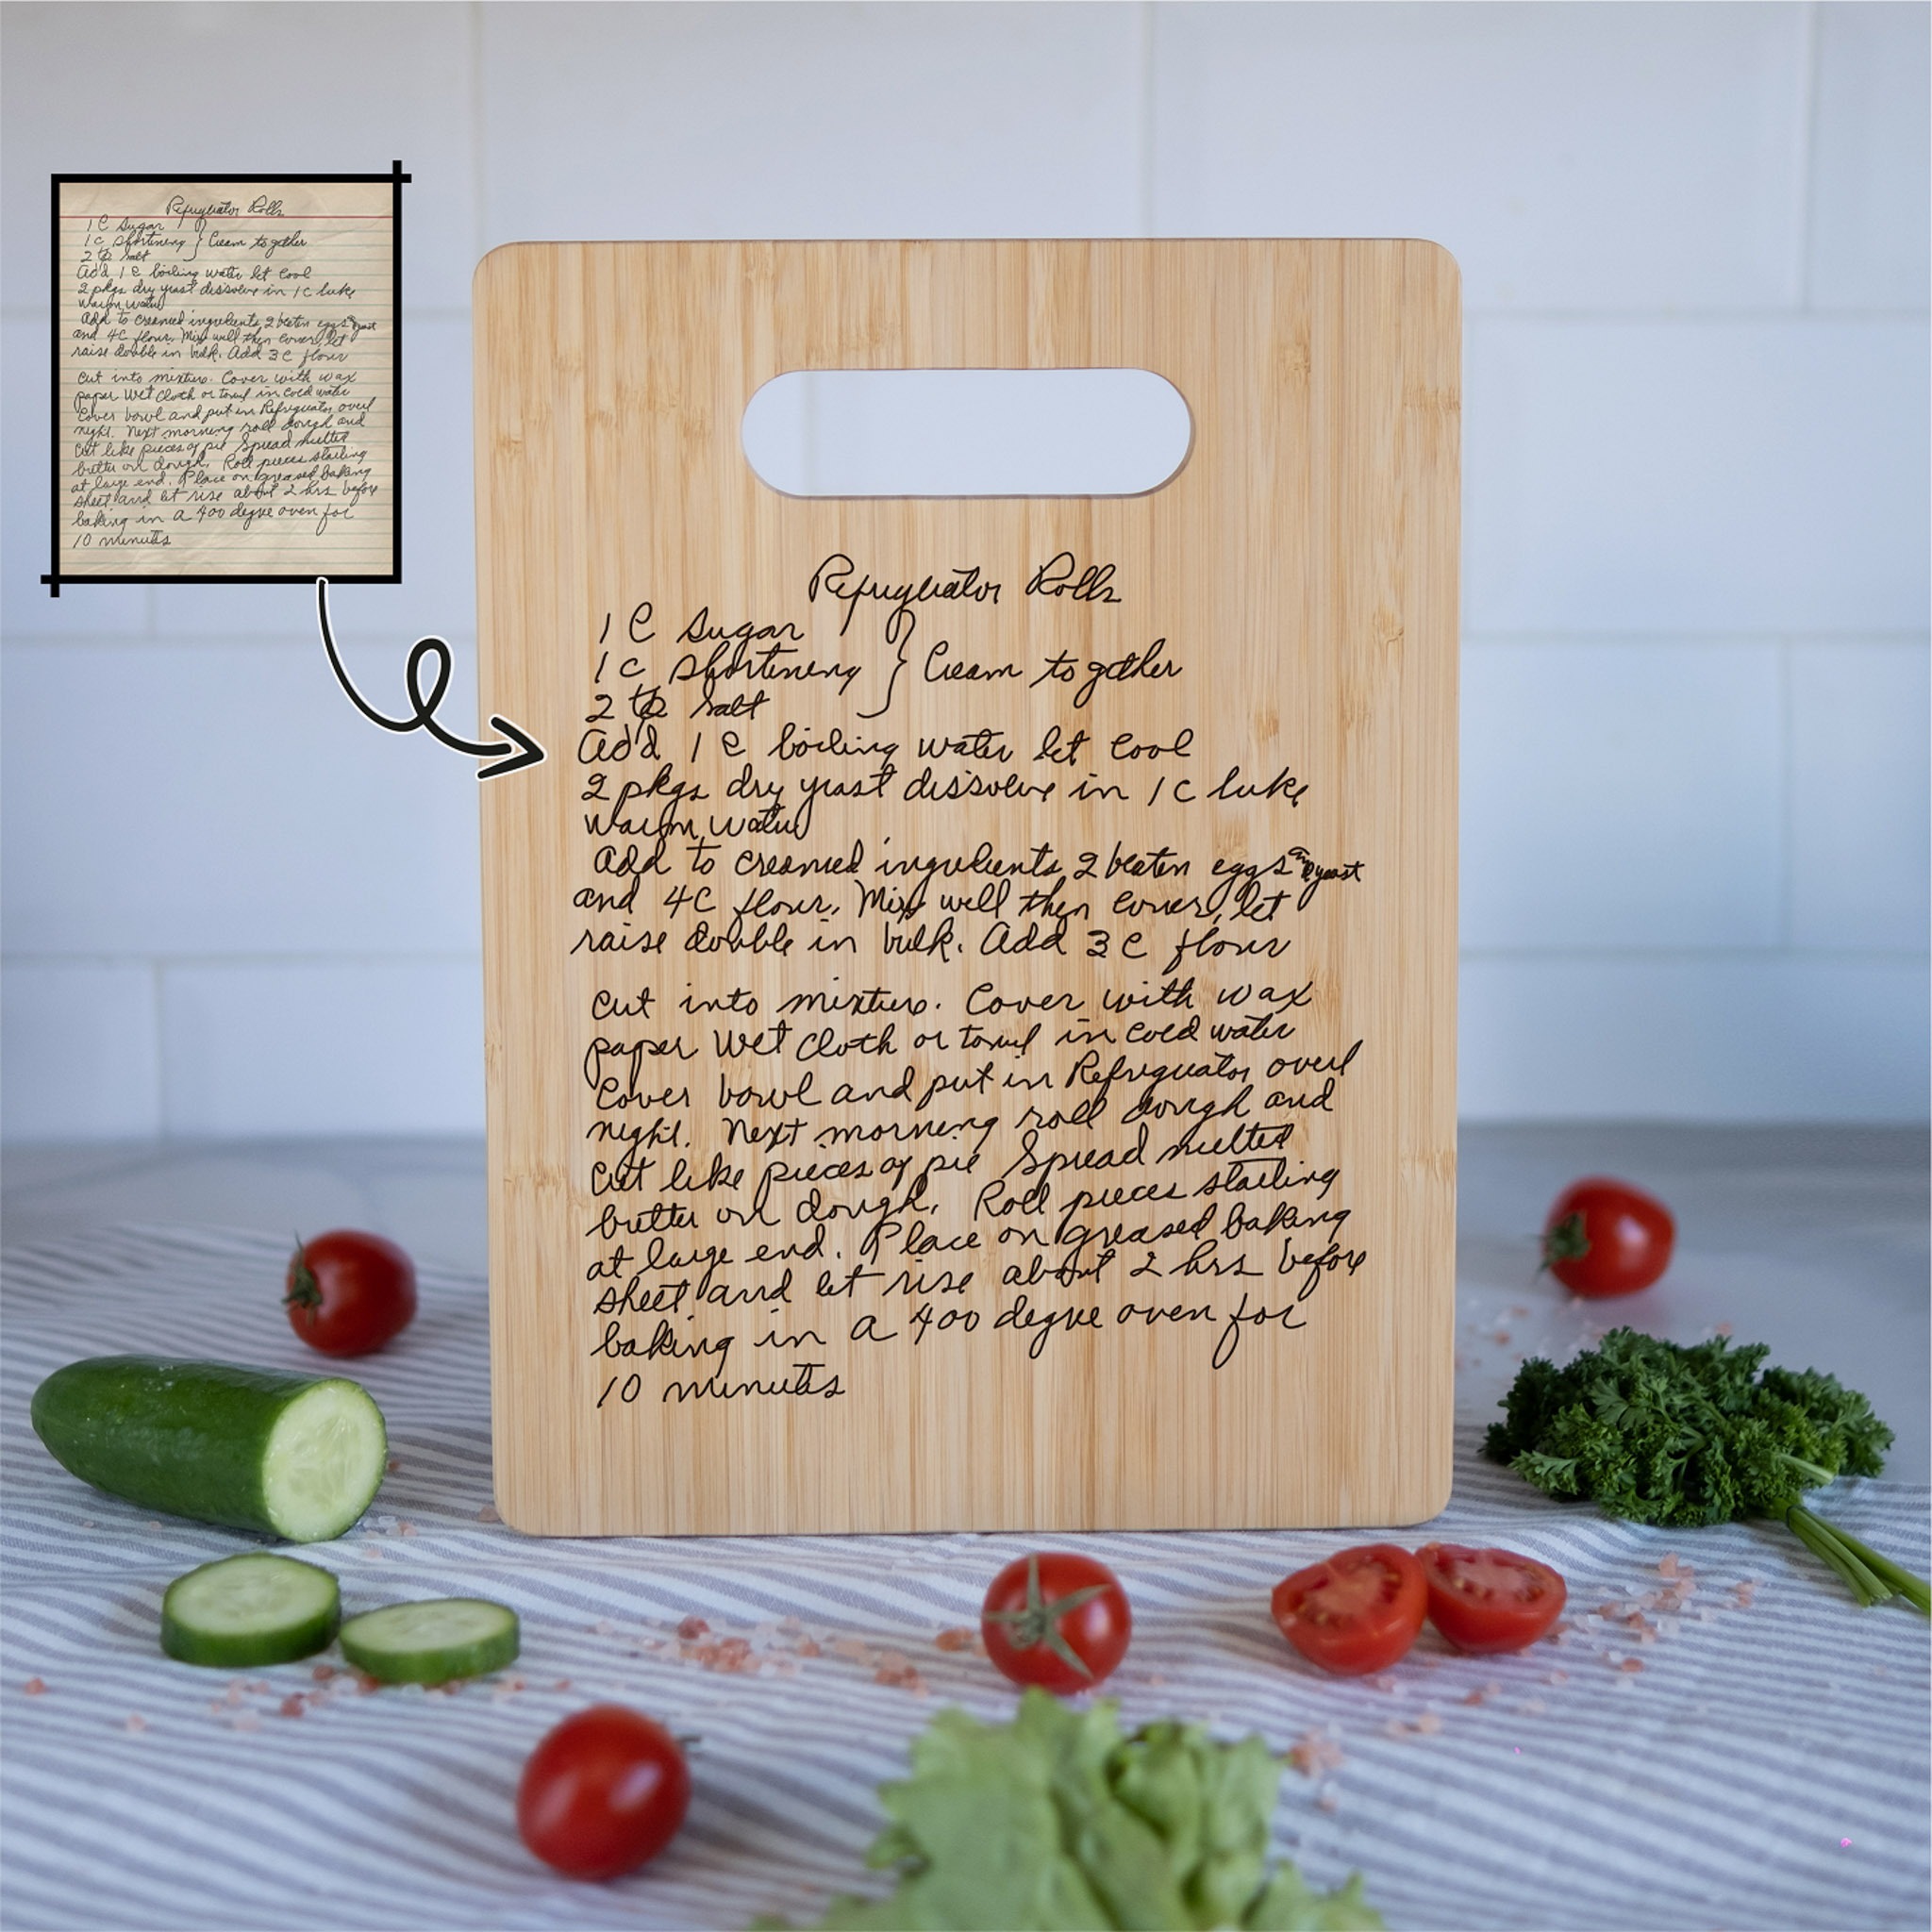 Refrigerator Rolls
1 C Sugar
1 c Shortening } Cream together
2 tsp salt
Add 1 C boiling water let cool
2 pkgs dry yeast dissolve in 1 c luke
warm water
Add to creamed ingredients, 2 beaten eggs and yeast
and 4C flour. Mix well then cover, let
raise double in bulk. Add 3 C flour
Cut into mixture. Cover with wax
paper Wet cloth or towel in cold water
Cover bowl and put in Refrigerator over
night. Next morning roll dough and
Cut like pieces of pie Spread melted
butter on dough. Roll pieces starting
at large end. Place on greased baking
sheet and let rise about 2 hrs before
baking in a 400 degree oven for
10 minutes
Refrigerator Rolls
1 C Sugar
1 c Shortening } Cream together
2 tsp salt
Add 1 C boiling water let cool
2 pkgs dry yeast dissolve in 1 c luke
warm water
Add to creamed ingredients, 2 beaten eggs and yeast
and 4C flour. Mix well then cover, let
raise double in bulk. Add 3 C flour
Cut into mixture. Cover with wax
paper Wet cloth or towel in cold water
Cover bowl and put in Refrigerator over
night. Next morning roll dough and
Cut like pieces of pie Spread melted
butter on dough. Roll pieces starting
at large end. Place on greased baking
sheet and let rise about 2 hrs before
baking in a 400 degree oven for
10 minutes